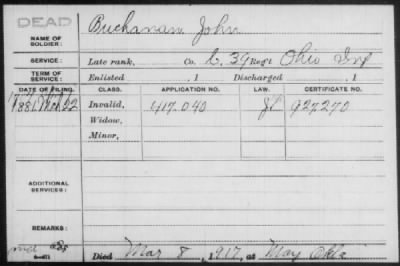 DEAD
NAME OF SOLDIER: Buchanan John
SERVICE: Late rank, Co. C, 39 Reg't Ohio Inf
TERM OF SERVICE: Enlisted , 1 Discharged , 1
DATE OF FILING. CLASS. APPLICATION NO. LAW. CERTIFICATE NO.
1881 22 Invalid, 417.040 927270
Widow,
Minor,
ADDITIONAL SERVICES:
REMARKS:
Died Mar 8, 1917, at May Okla